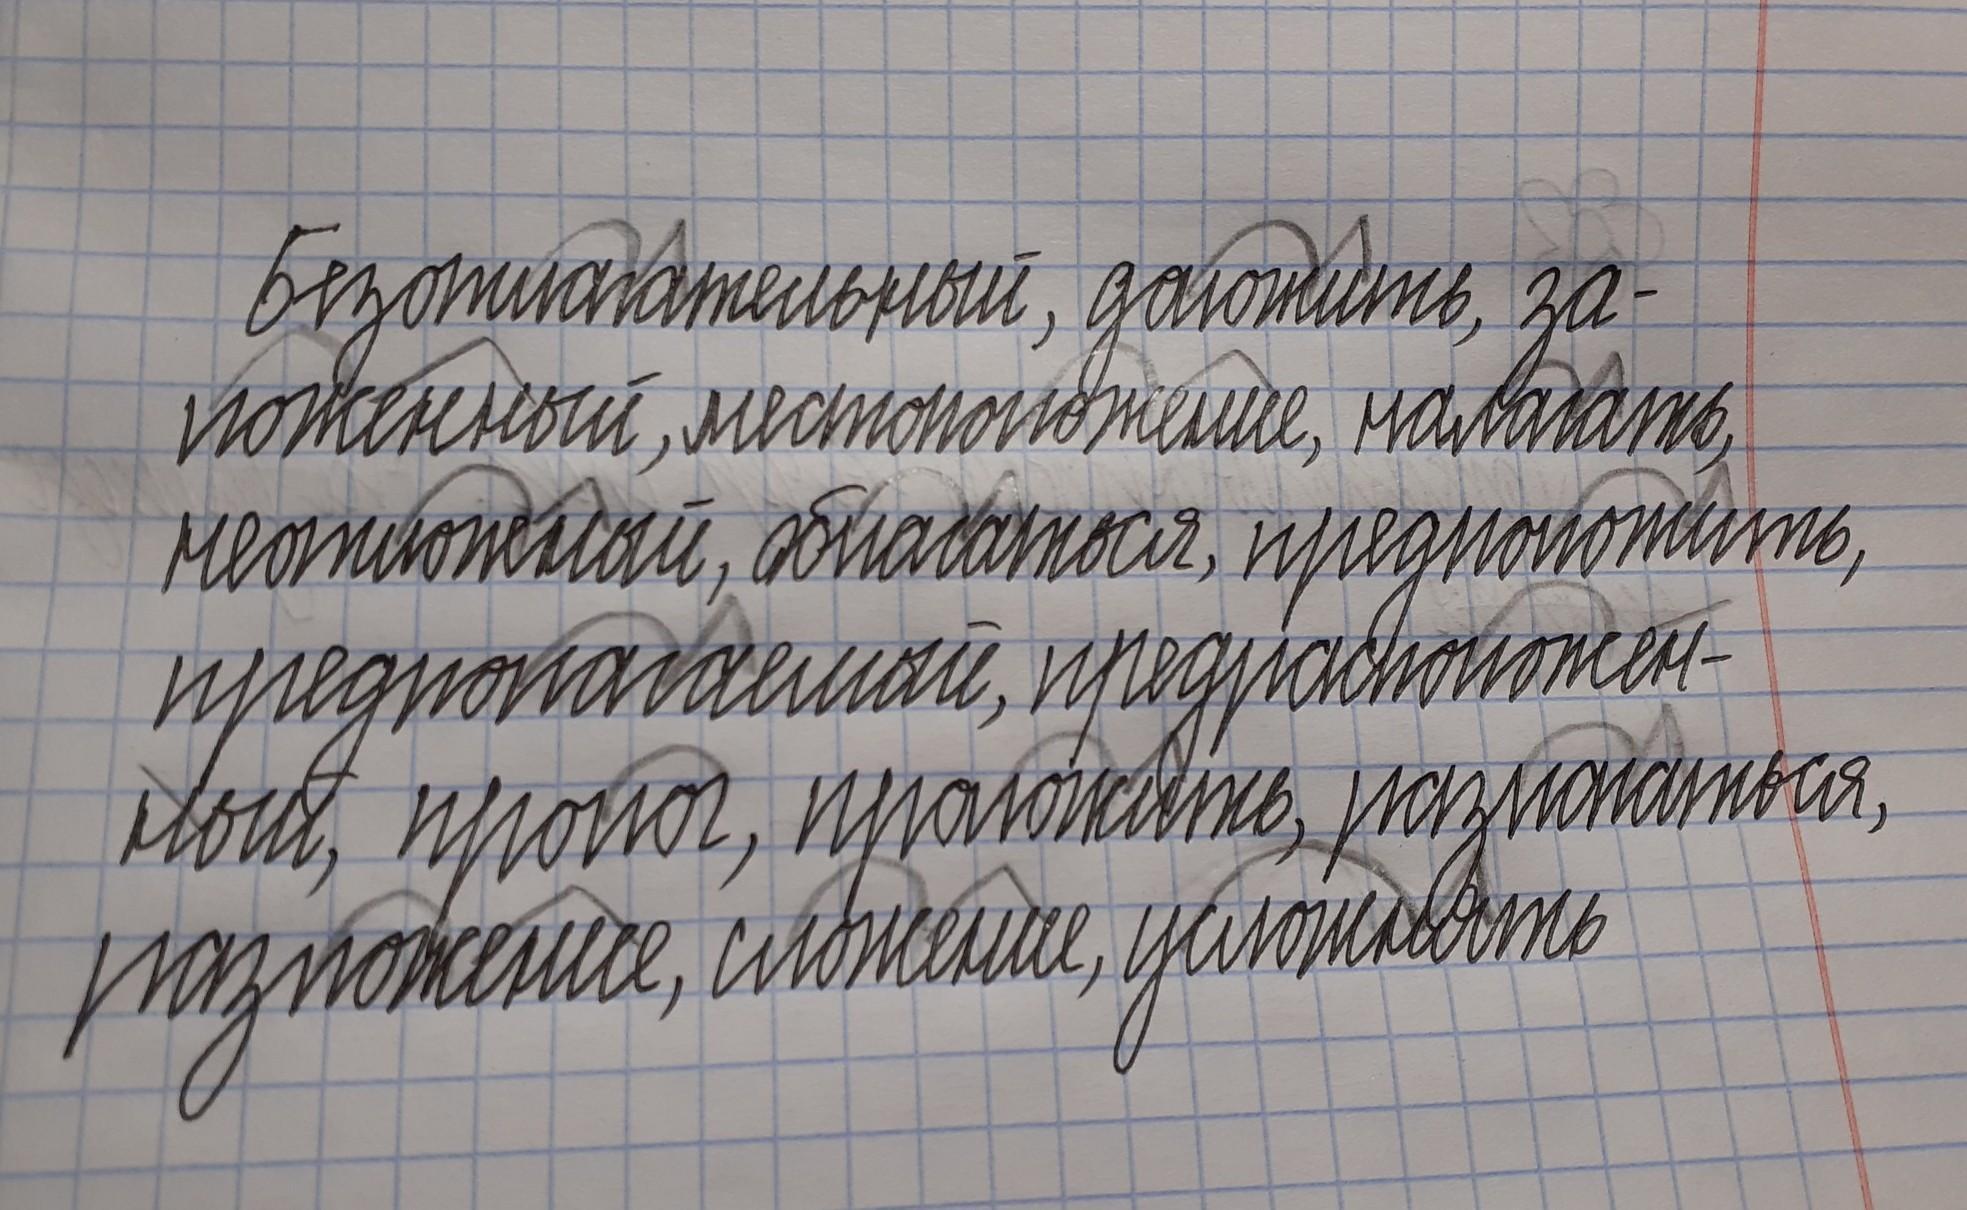 Безотлагательный, доложить, за-
ложенный, местоположение, налагать,
неотложный, облагаться, предположить,
предполагаемый, предрасположен-
ный, пролог, проложить, разлагаться,
разложение, сложение, усложнять